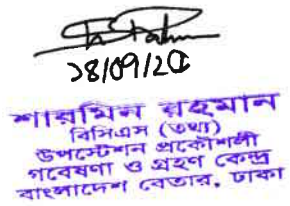 ১৪/০৭/২৫
শারমিন রহমান
বিসিএস (তথ্য)
উপস্টেশন প্রকৌশলী
গবেষণা ও গ্রহণ কেন্দ্র
বাংলাদেশ বেতার, ঢাকা